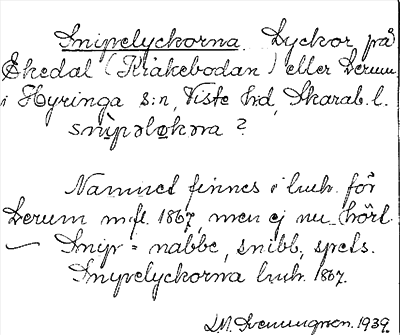 Snipelyckorna. Lyckor på
Ekedal (Kråkebodan) eller Derum
i Hyringa s:n, Viste hd, Skarab. l.
snìpəlɵkəna ?
Namnet finnes i luh. för
Derum m.fl. 1867, men ej nu hört
— Snip = nabbe, snibb, spets.
Snipelyckorna luh. 1867.
1939.